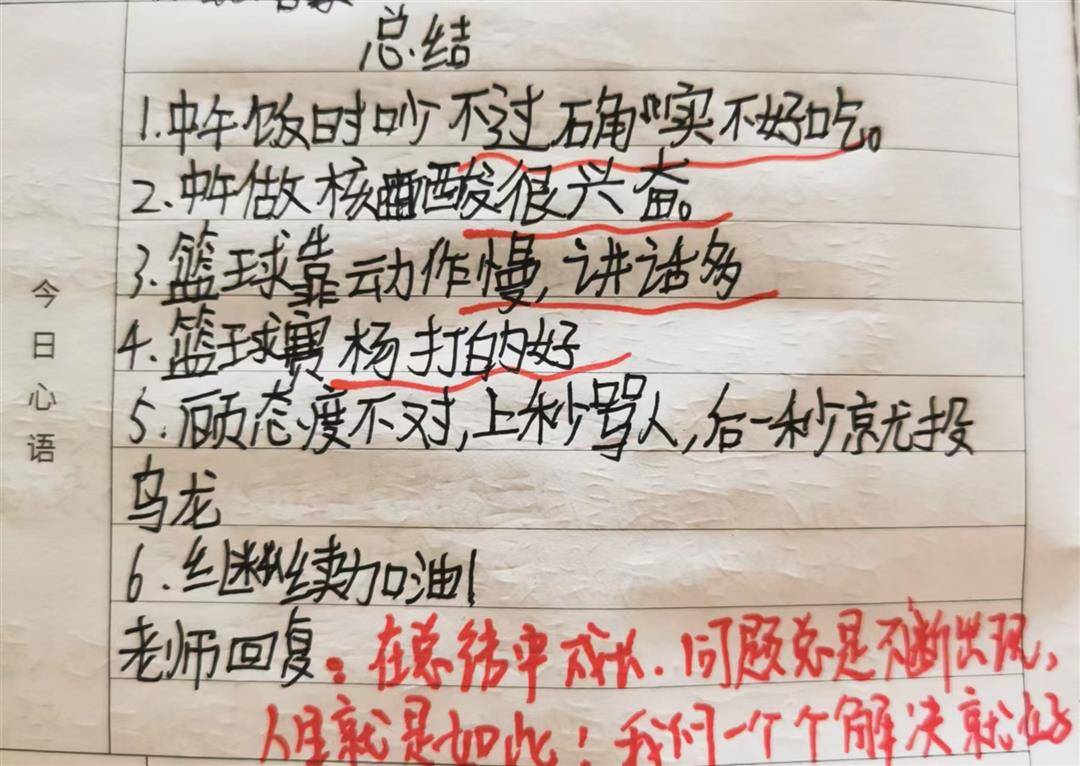 总结
1.中午饭时吵不过石角"实不好吃。
2.中午做核酸很兴奋。
3.篮球靠动作慢,讲话多
4.篮球赛杨打的好
今日心语
5.顾态度不对,上秒骂人,后一秒就投
乌龙
6.继续加油!
老师回复:在总结中成长.问题总是不断出现,
人生就是如此!我们一个个解决就好